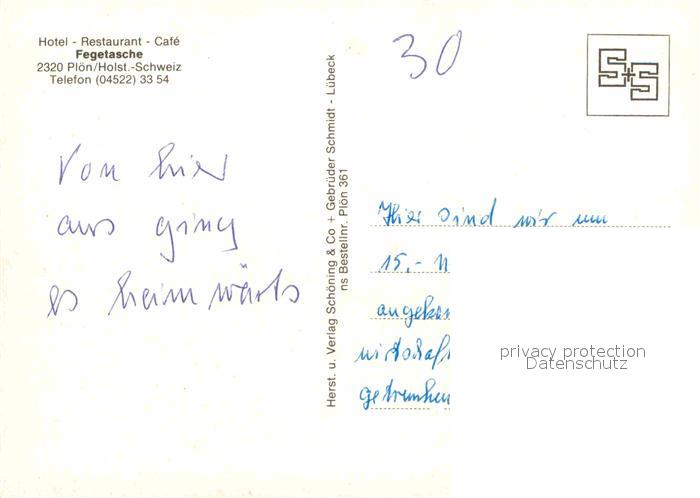 Hotel - Restaurant - Café
Fegetasche
2320 Plön/Holst.-Schweiz
Telefon (04522) 33 54
Von hier
aus ging
es heimwärts
Herst. u. Verlag Schöning & Co + Gebrüder Schmidt - Lübeck
ns Bestellnr. Plön 361
30
S+S
Hier sind wir um
15,-
angekom
wirtschaf
getrunken
privacy protection
Datenschutz